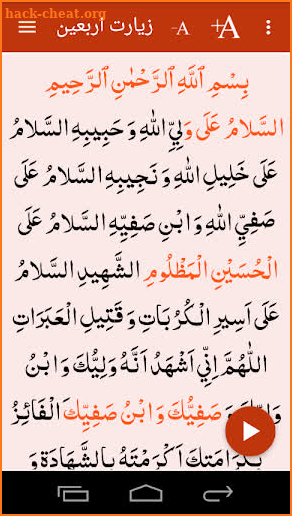 hack-cheat.org
زیارت اربعین -A +A
بِسْمِ ٱللَّهِ ٱلرَّحْمَٰنِ ٱلرَّحِيمِ
السَّلامُ عَلَى وَلِيِّ اللهِ وَ حَبِيبِهِ السَّلامُ
عَلَى خَلِيلِ اللهِ وَ نَجِيبِهِ السَّلامُ عَلَى
صَفِيِّ اللهِ وَ ابْنِ صَفِيِّهِ السَّلامُ عَلَى
الْحُسَيْنِ الْمَظْلُومِ الشَّهِيدِ السَّلامُ
عَلَى أَسِيرِ الْكُرُبَاتِ وَ قَتِيلِ الْعَبَرَاتِ
اللَّهُمَّ إِنِّي أَشْهَدُ أَنَّهُ وَلِيُّكَ وَ ابْنُ
وَلِيِّكَ وَ صَفِيُّكَ وَ ابْنُ صَفِيِّكَ الْفَائِزُ
بِكَرَامَتِكَ أَكْرَمْتَهُ بِالشَّهَادَةِ وَ